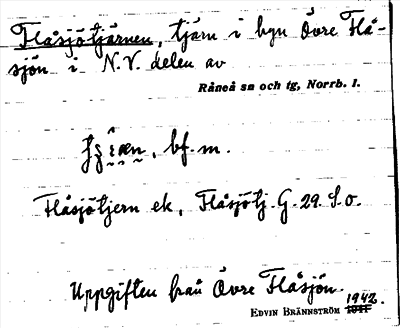 Flåsjötjärnen, tjärn i byn Övre Flå-
sjön i N.V. delen av
Råneå sn och tg, Norrb. l.
bf. m.
Flåsjötjern ek, Flåsjötj. G. 29. S. o.
Uppgiften från Övre Flåsjön.
1942.
EDVIN BRÄNNSTRÖM 1941